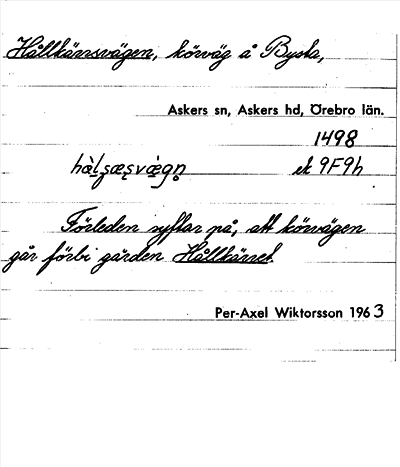 Hållkärrsvägen, körväg å Bysta,
Askers sn, Askers hd, Örebro län.
1498
hàl̥sæs̨væ̀gn̥ ek 9F9h
Förleden syftar på, att körvägen
går förbi gården Hållkärret.
Per-Axel Wiktorsson 1963